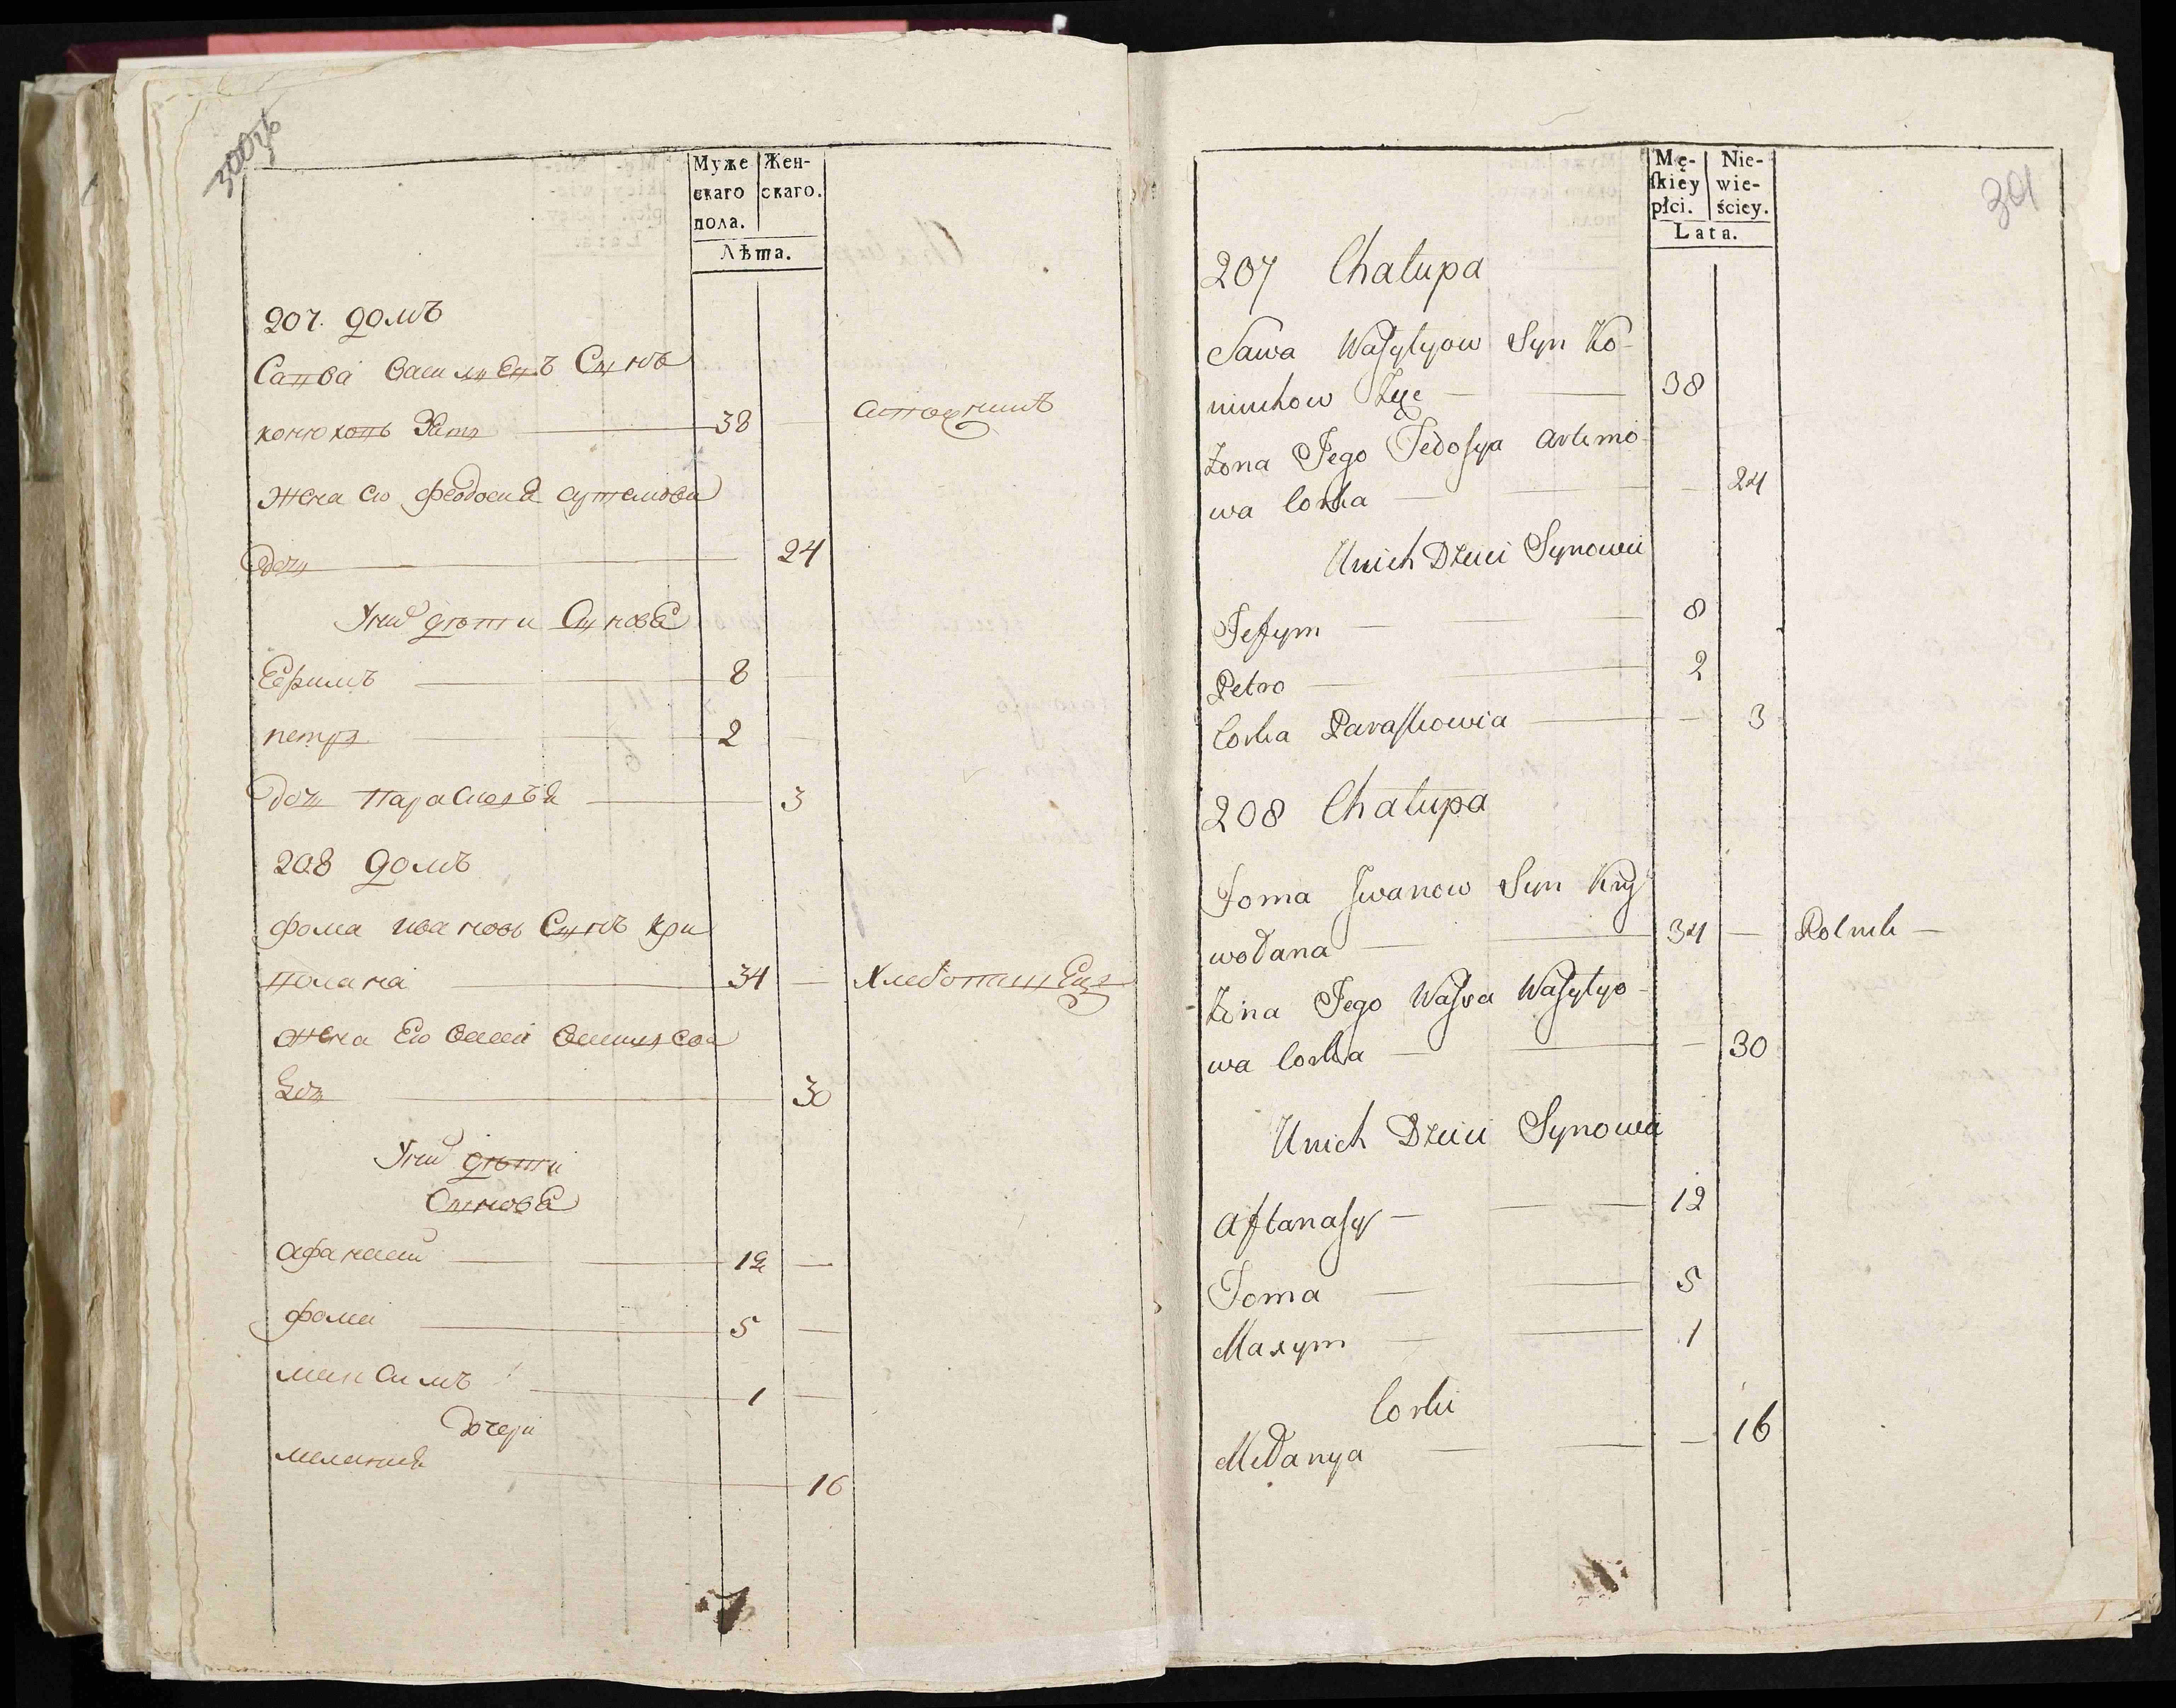 300 об
Муже
скаго
пола.
Жен-
скаго.
Лѣта.
207. домъ
Савва Васильевъ Сынъ
конюховъ Зять 38
жена его феодосиа артемова
дочь 24
Уних дѣти Сыновя
Ефимъ 8
петръ 2
дочь Парасковѣя 3
208 домъ
фома иванов Сынъ Кри
полана 34 — Хлебопашецъ
жена Его Васса Василева
дочь 30
Уних дѣти
Сыновя
афанасий 12 —
фома 5 —
максимъ 1 —
дочери
мелания 16
Mę-
ſkiey
płci.
Nie-
wie-
ściey.
Lata.
301
207 Chałupa
Sawa Wasylyow Syn Ko-
niuchow Zęc 38
Żona Jego Fedosya Artemo-
wa Corka 24
Unich Dzieci Synowie
Jefym 8
Petro 2
Corka Paraskowia — 3
208 Chałupa
Foma Iwanow Syn Kry
wolana 34 — Rolnik —
Żona Jego Wassa Wasylyo-
wa Corka — 30
Unich Dzieci Synowie
Aftanasy — 12
Foma 5
Maxym 1
Corki
Melanya — 16